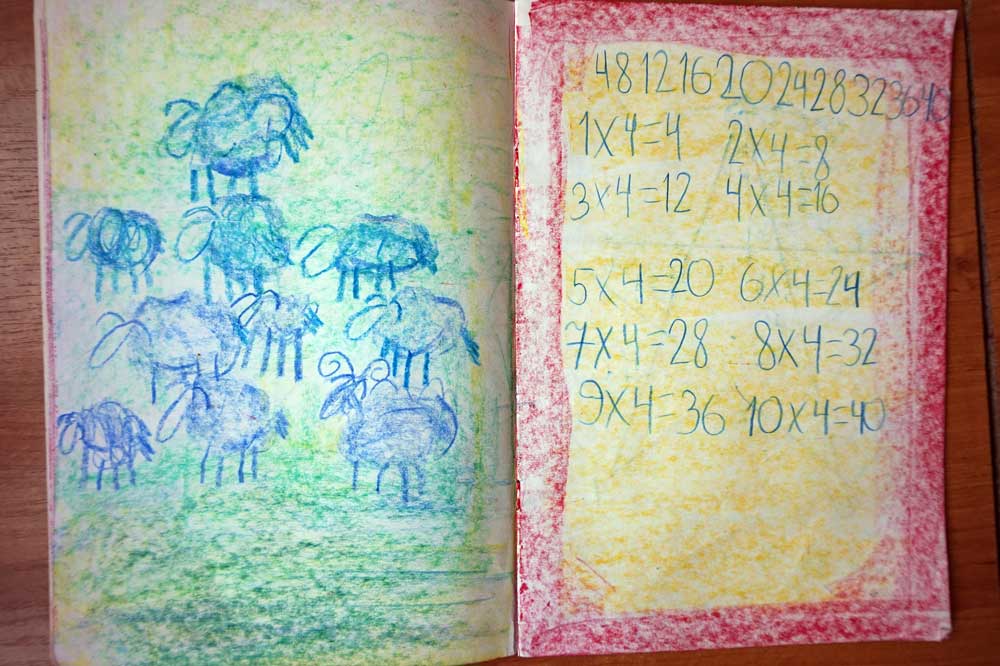 4 8 12 16 20 24 28 32 36 40
1x4=4 2x4=8
3x4=12 4x4=16
5x4=20 6x4=24
7x4=28 8x4=32
9x4=36 10x4=40